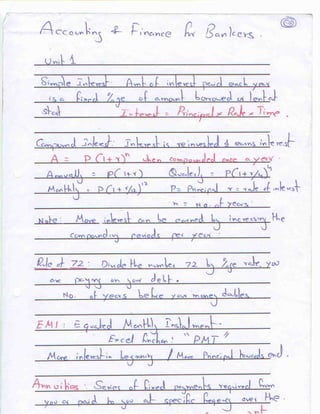 Accounting & Finance for Bankers.
Unit 1
Simple Interest Amt of interest paid each year
is a fixed %ge of amount borrowed or lent at
start Interest = Principal x Rate x Time
Compound Interest: Interest is reinvested & earns interest
A = P(1+r)ⁿ when compounded once a year
Annually = P(1+r) Quarterly = P(1+r/4)⁴
Monthly = P(1+r/12)¹² P= Principal r = rate of interest
n = no. of years
Note: More interest can be earned by increasing the
compounding periods per year
Rule of 72: Divide the number 72 by %ge rate, you
are paying on your debt.
No. of years before your money doubles
EMI: Equated Monthly Instalment.
Excel function: "PMT"
More interest in beginning / More Principal towards end.
Annuities: Series of fixed payments required from
you or paid to you at specific freq over the